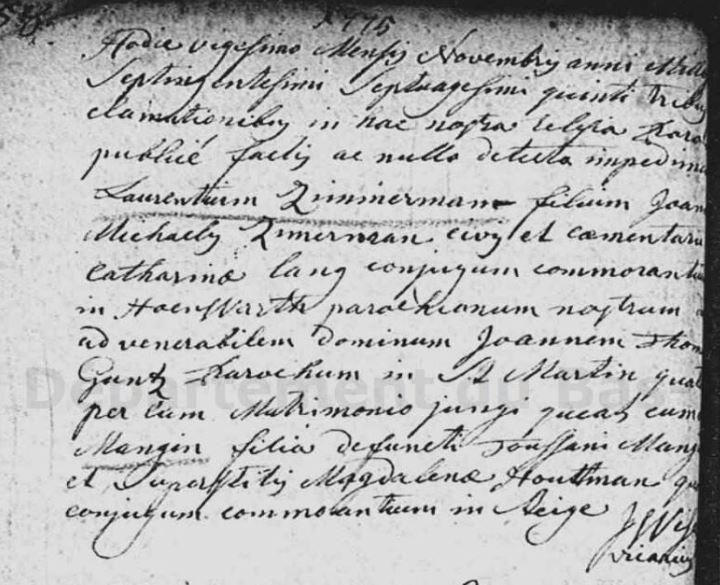 1775
Hodie vigesimo Mensis Novembris anni Mille
Septingentesimi Septuagesimi quinti tribus
clamationibus in hac nostra Eclsia Paro
publicé factis ac nullo detecto impedime
Laurentium Zimmerman filium Joan
Michaelis Zimerman civis et cæmentarii
Catharinæ lang conjugum commorantiu
in HoenWarth parochianum nostrum
ad venerabilem dominum Joannem Thom
Gantz Parochum in St Martin quat
per eum Matrimonio jungi queat cum
Mangin filia defuncti Toussani Mang
et Superstitis Magdalenæ Houttman
conjugum commorantium in Steige
vicarius
Département du Bas-